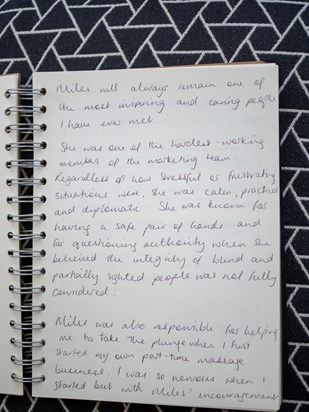 Miles will always remain one of
the most inspiring and caring people
I have ever met.
She was one of the hardest-working
members of the marketing team.
Regardless of how stressful or frustrating
situations were, she was calm, practical
and diplomatic. She was known for
having a safe pair of hands and
for questioning authority when she
believed the integrity of blind and
partially sighted people was not fully
considered.
Miles was also responsible for helping
me to take the plunge when I first
started my own part-time massage
business. I was so nervous when I
started but with Miles' encouragement